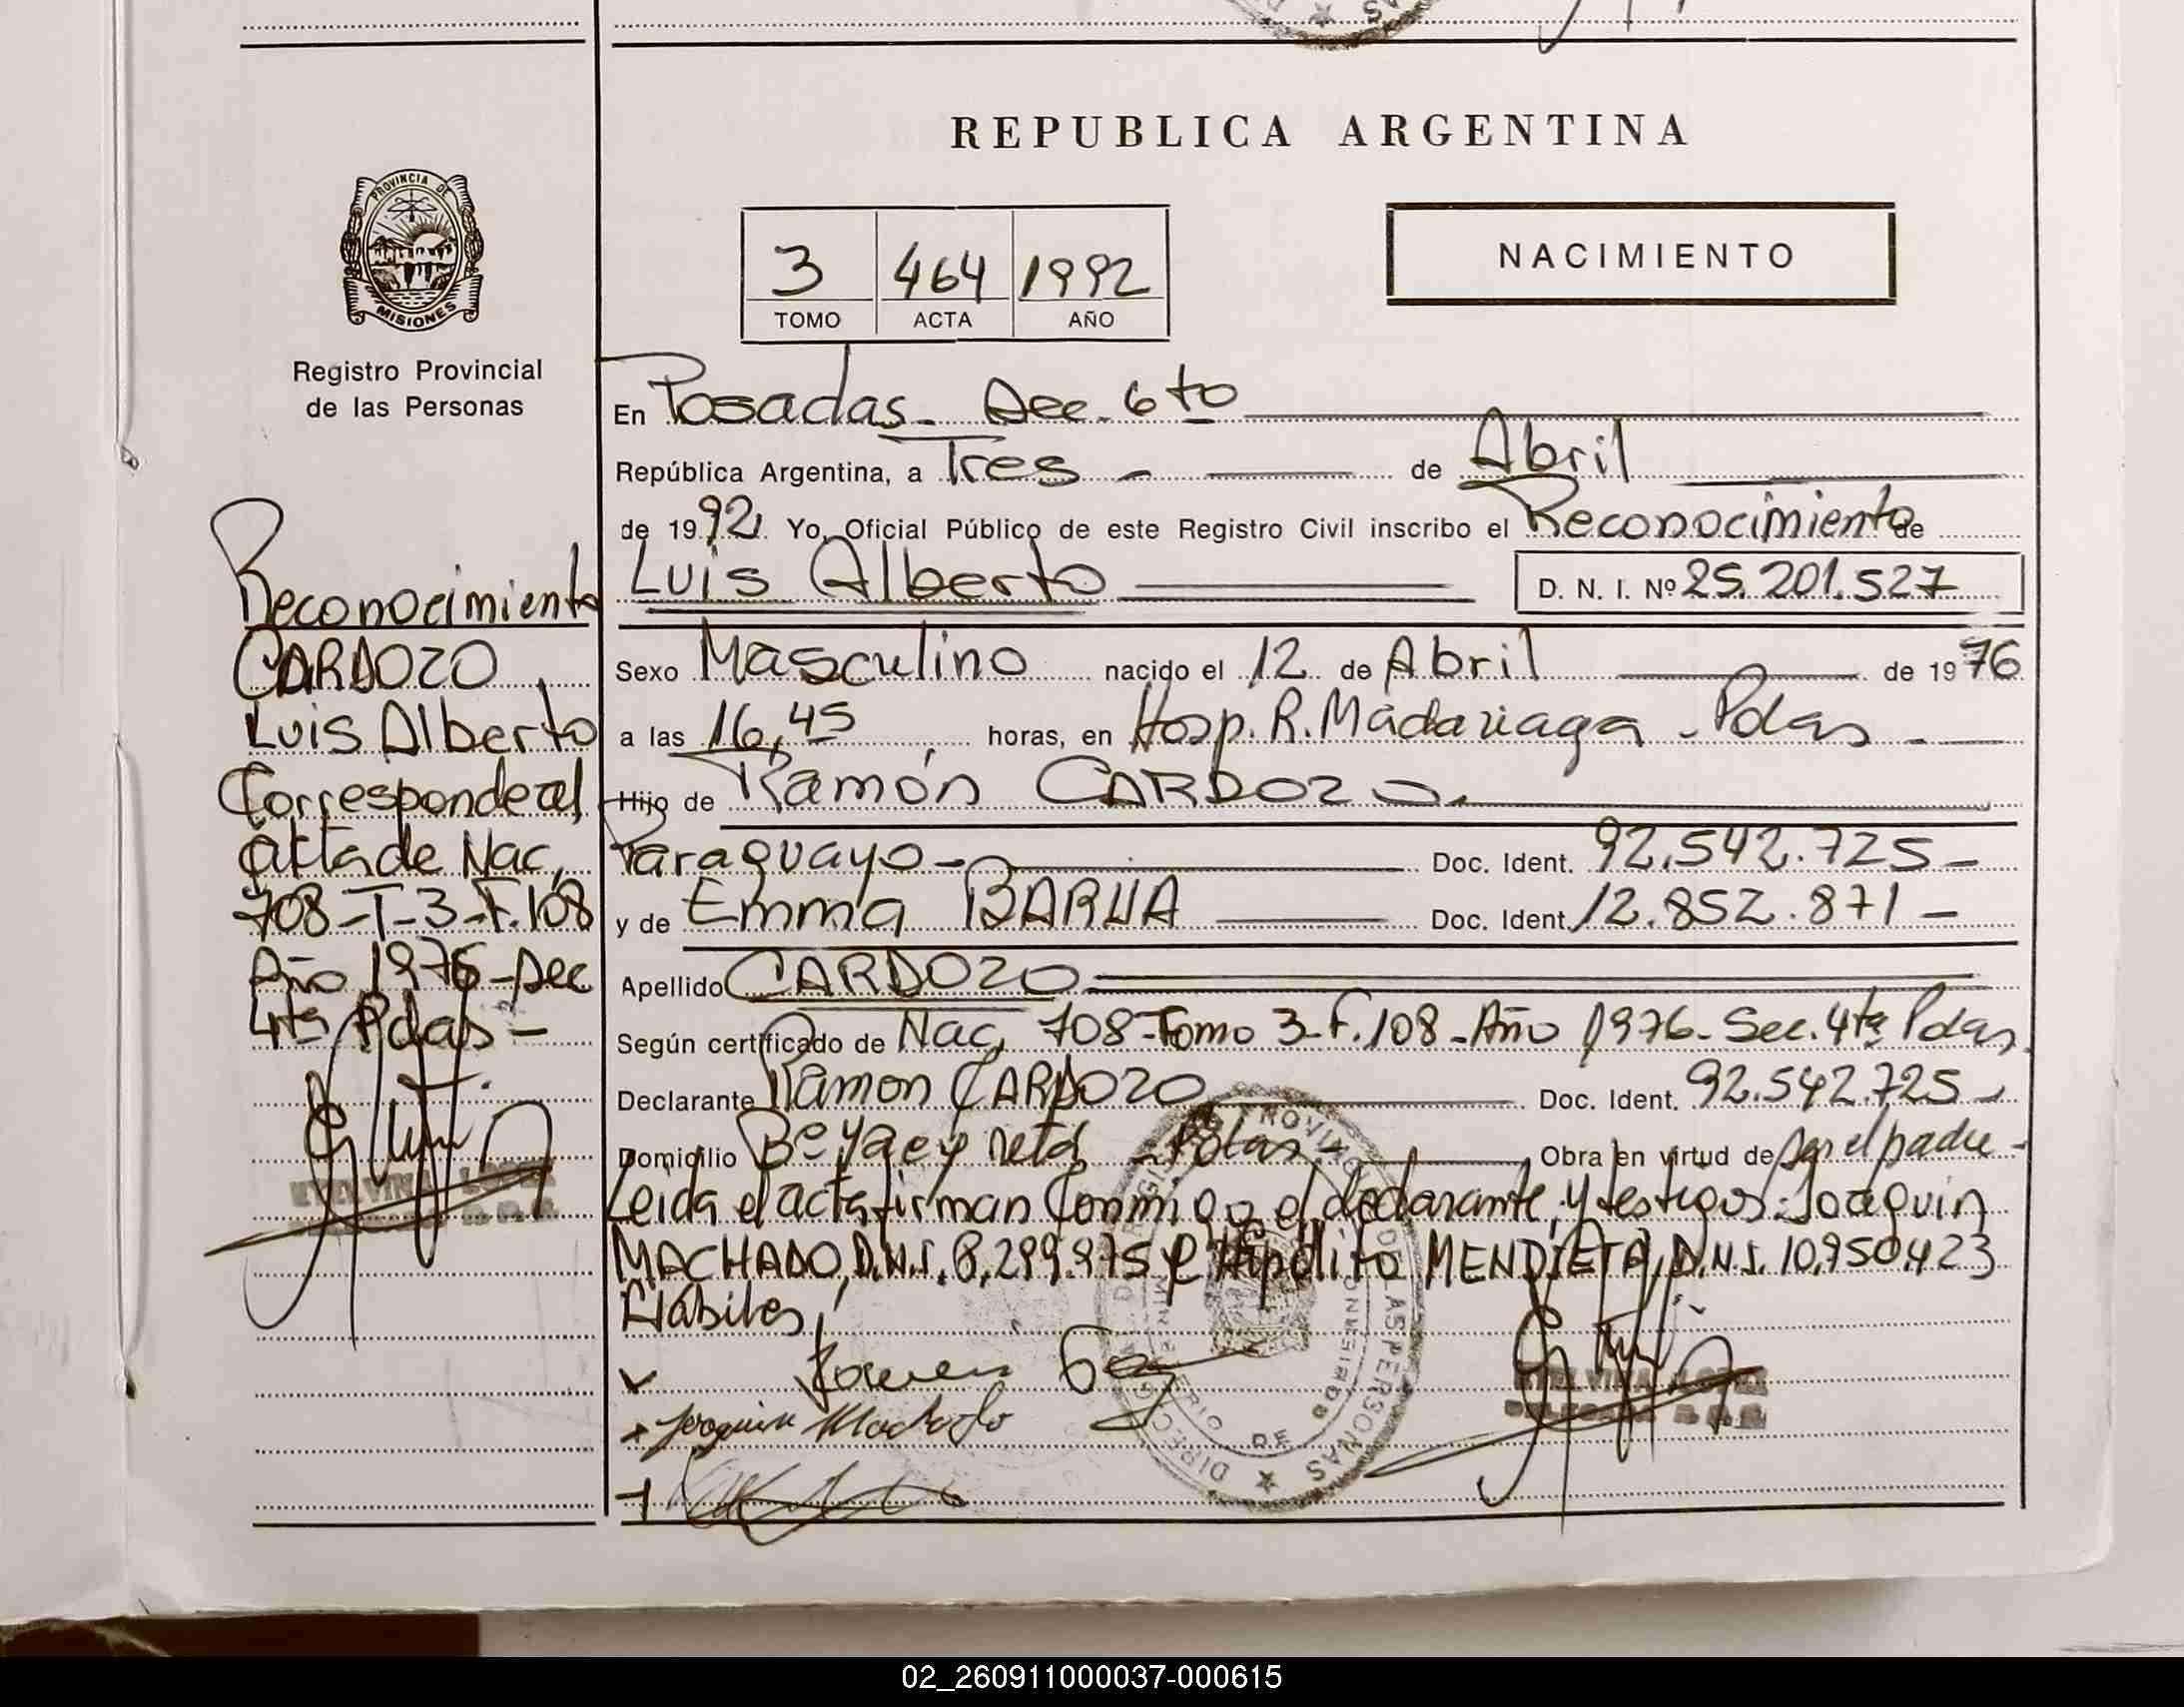 REPUBLICA ARGENTINA
PROVINCIA DE
MISIONES
Registro Provincial
de las Personas
3 464 1992
TOMO ACTA AÑO
NACIMIENTO
Reconocimiento
CARDOZO
Luis Alberto
Corresponde al
acta de Nac,
708-T-3-F.108
Año 1976-Sec
4ta Pdas-
En Posadas- Sec. 6to
República Argentina, a Tres - de Abril
de 1992. Yo, Oficial Público de este Registro Civil inscribo el Reconocimiento de
Luis Alberto D. N. I. Nº 25.201.527
Sexo Masculino nacido el 12 de Abril de 1976
a las 16,45 horas, en Hosp. R. Madariaga - Pdas -
Hijo de Ramón CARDOZO.
Paraguayo- Doc. Ident. 92.542.725-
y de Emma BARUA Doc. Ident. 12.852.871-
Apellido CARDOZO
Según certificado de Nac, 708-Tomo 3-F.108-Año 1976-Sec. 4ta Pdas,
Declarante Ramon CARDOZO Doc. Ident. 92.542.725-
Domicilio Bº Yacyretá -Pdas- Obra en virtud de ser el padre-
Leida el acta firman conmigo el declarante, y testigos: Joaquin
MACHADO, D.N.I. 8.299.975 e Hipólito MENDIETA, D.N.I. 10.950.423
Hábiles,
Joaquin Machado
DE LAS PERSONAS
02_260911000037-000615